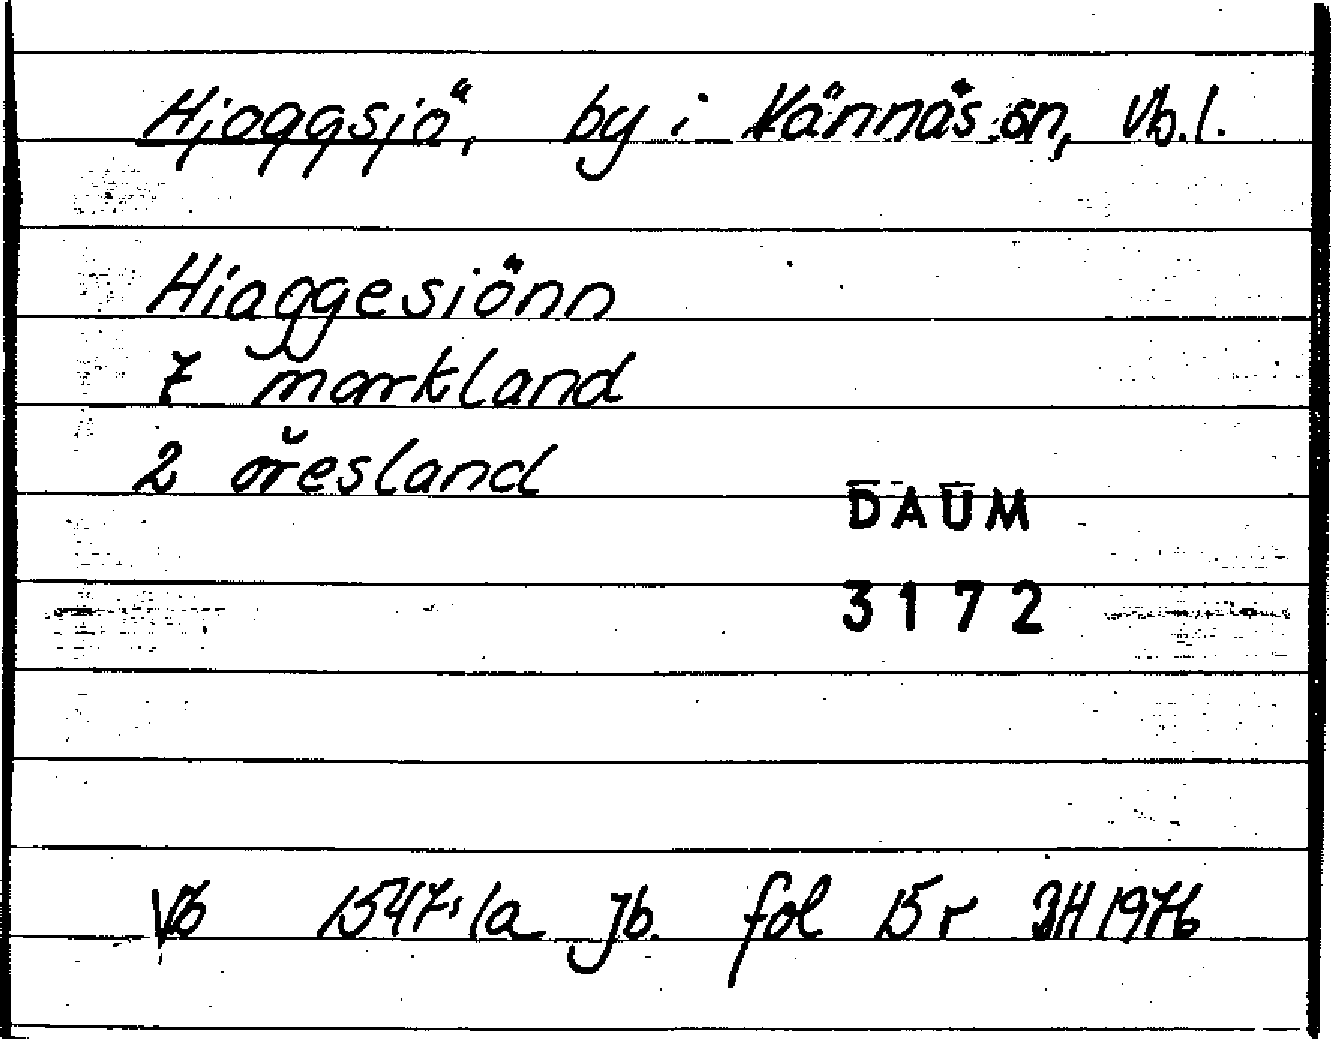 Hjoggsjö, by i Vännäs sn, Vb.l.
Hiaggesiönn
7 markland
2 öresland
DAUM
3172
Vb 1547:1a Jb. fol 15 r 1976